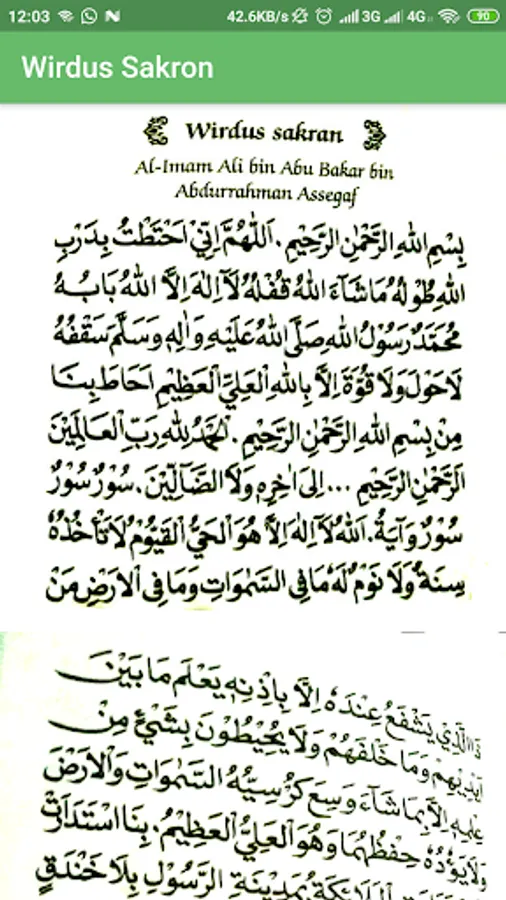 12:03 42.6KB/s 3G 4G 90
Wirdus Sakron
Wirdus sakran
Al-Imam Ali bin Abu Bakar bin
Abdurrahman Assegaf
بِسْمِ اللهِ الرَّحْمٰنِ الرَّحِيْمِ. اَللّٰهُمَّ اِنِّيْ احْتَطْتُ بِدَرْبِ
اللهِ طُوْلُهُ مَا شَآءَ اللهُ قُفْلُهُ لَآ اِلٰهَ اِلَّا اللهُ بَابُهُ
مُحَمَّدٌ رَسُوْلُ اللهِ صَلَّى اللهُ عَلَيْهِ وَاٰلِهِ وَسَلَّمَ سَقْفُهُ
لَاحَوْلَ وَلَا قُوَّةَ اِلَّا بِاللهِ الْعَلِيِّ الْعَظِيْمِ اَحَاطَ بِنَا
مِنْ بِسْمِ اللهِ الرَّحْمٰنِ الرَّحِيْمِ. اَلْحَمْدُ لِلهِ رَبِّ الْعَالَمِيْنَ
اَلرَّحْمٰنِ الرَّحِيْمِ ... اِلَى اٰخِرِهِ وَلَا الضَّآلِّيْنَ. سُوْرٌ سُوْرٌ
سُوْرٌ وَآيَةُ. اَللهُ لَآ اِلٰهَ اِلَّا هُوَ الْحَيُّ الْقَيُّوْمُ لَا تَأْخُذُهُ
سِنَةٌ وَلَا نَوْمٌ لَهُ مَا فِى السَّمٰوَاتِ وَمَا فِى الْاَرْضِ مَنْ
ذَا الَّذِيْ يَشْفَعُ عِنْدَهُ اِلَّا بِاِذْنِهِ يَعْلَمُ مَا بَيْنَ
اَيْدِيْهِمْ وَمَا خَلْفَهُمْ وَلَا يُحِيْطُوْنَ بِشَيْءٍ مِنْ
عِلْمِهِ اِلَّا بِمَا شَآءَ وَسِعَ كُرْسِيُّهُ السَّمٰوَاتِ وَالْاَرْضَ
وَلَا يَؤُدُهُ حِفْظُهُمَا وَهُوَ الْعَلِيُّ الْعَظِيْمُ. بِنَا اسْتَدَارَتْ
الْمَلَائِكَةُ بِمَدِيْنَةِ الرَّسُوْلِ بِلَا خَنْدَقٍ